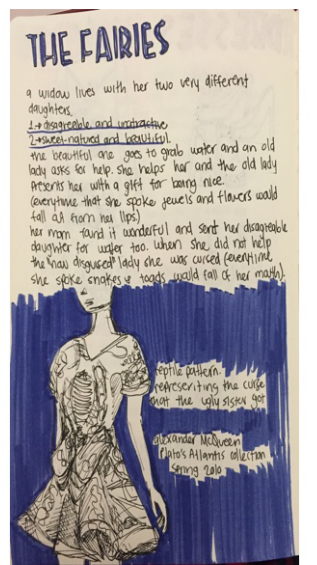 THE FAIRIES
a widow lives with her two very different
daughters.
1.→ disagreeable and unatractive
2→ sweet-natured and beautiful.
the beautiful one goes to grab water and an old
lady asks for help. she helps her and the old lady
presents her with a gift for being nice.
(everytime that she spoke jewels and flowers would
fall off from her lips)
her mom found it wonderful and sent her disagreable
daughter for water too. when she did not help
the "now disguised" lady she was cursed (everytime
she spoke snakes & toads would fall of her mouth).
reptile pattern.
representing the curse
that the ugly sister got
alexander McQueen
Plato's Atlantis collection
spring 2010